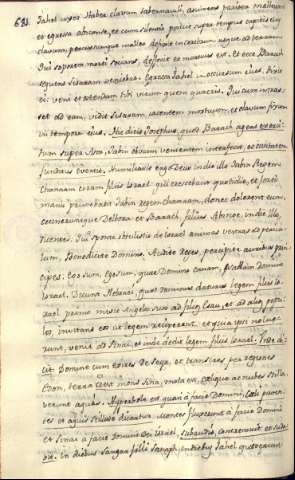 681. Iahel uxor Haber clavum tabernaculi, assumens pariter malleum
et ingressa abscondite, et cum silentio posuit supra tempus capitis eius
clavum, percussumque malleo defixit in cerebrum usque ad terram.
Qui soporem morti socians, defecit et mortuus est. Et ecce Barach
sequens Sisaram veniebat. Egressa Iahel in occursum eius, dixit
ei: veni et ostendam tibi virum quem quaeris. Qui cum intras-
set ad eam, vidit Sisaram iacentem mortuum, et clavum fixum
in tempore eius. Hic dicit Iosephus, quod Barach
supra Asor, Iabin obviam venientem interfecit, et civitatem
funditus evertit. Humiliavit ergo Deus in die illo Iabin Regem
Chanaan coram filiis Israel. qui crescebant quotidie, et forti
manu opprimebant Iabin regem Chanaan, donec delerent eum.
Cecineruntque Debbora et Baarach filius Abinoe in die illo,
dicentes. Qui sponte obtulistis de Israel animas vestras ad pericu-
lum, Benedicite Domino. Audite Reges, percipite auribus prin-
cipes. Ego sum, ego sum, quae Domino canam, Psallam Domino
Israel. Dicunt Hebraei, quod Dominus daturus legem filiis Is-
rael primo misit Angelos suos ad filios Esau, et ad alios popu-
los, invitans eos ut legem reciperent, et quia ipsi nolue-
runt, venit ad Sinai, et inde dedit legem filiis Israel. Inde di-
cit Domine cum exires de Seyr, et transires per regiones
Edom, terra caeli mons Sinai, mota est, caelique ac nubes stilla-
verunt aquis. Hyperbole est quam a facie Domini, Caeli pavere
et aquis stillasse dicantur. Montes fluxerunt a facie Domini
et Sinai a facie Domini Dei Israel, subaudis, contremuit et suda-
vit. In diebus Sangar filii Anath, in diebus Iahel quieverunt